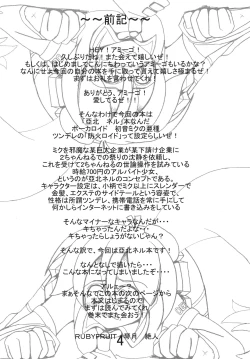 ～～前記～～
HEY！アミーゴ！
久しぶりだね！また会えて嬉しいぜ！
もしくは、はじめましてこんにちわっていうアミーゴもいるかな？
なんにせよ今回の自分の本を手に取って貰えて嬉しさ極まるぜ！
まずはお礼を言わせてくれ！
ありがとう、アミーゴ！
愛してるぜ！！
そんなわけで今回の本は
「亜北　ネル」本なんだ
ボーカロイド　初音ミクの亜種
ツンデレの「防火ロイド」って設定らしいぜ！
ミクを邪魔な某巨大企業が某下請け企業に
２ちゃんねるでの祭りの沈静を依頼し、
これを受けて２ちゃんねるの世論操作を試みている
時給700円のアルバイト少女、
というのが亜北ネルのコンセプトである。
キャラクター設定は、小柄でミク以上にスレンダーで
金髪、エクステのサイドテールという容姿で、
性格は所謂ツンデレ、携帯電話を常に手にして
何かしらインターネットに書き込みをしている
そんなマイナーなキャラなんだが・・・
キちゃったんだよな…
キちゃったらしょうがないじゃん？
そんな訳で、今回は亜北ネル本です！
なんとなしで描いたら・・・
こんな本になってしまいましたぞ・・・・
アルェーー？
まぁそんなでこの本の次のページから
本文はじまるので
まずは読んでみてくれ
巻末でまた会おう！
RUBYFRUIT　月　絶人
4